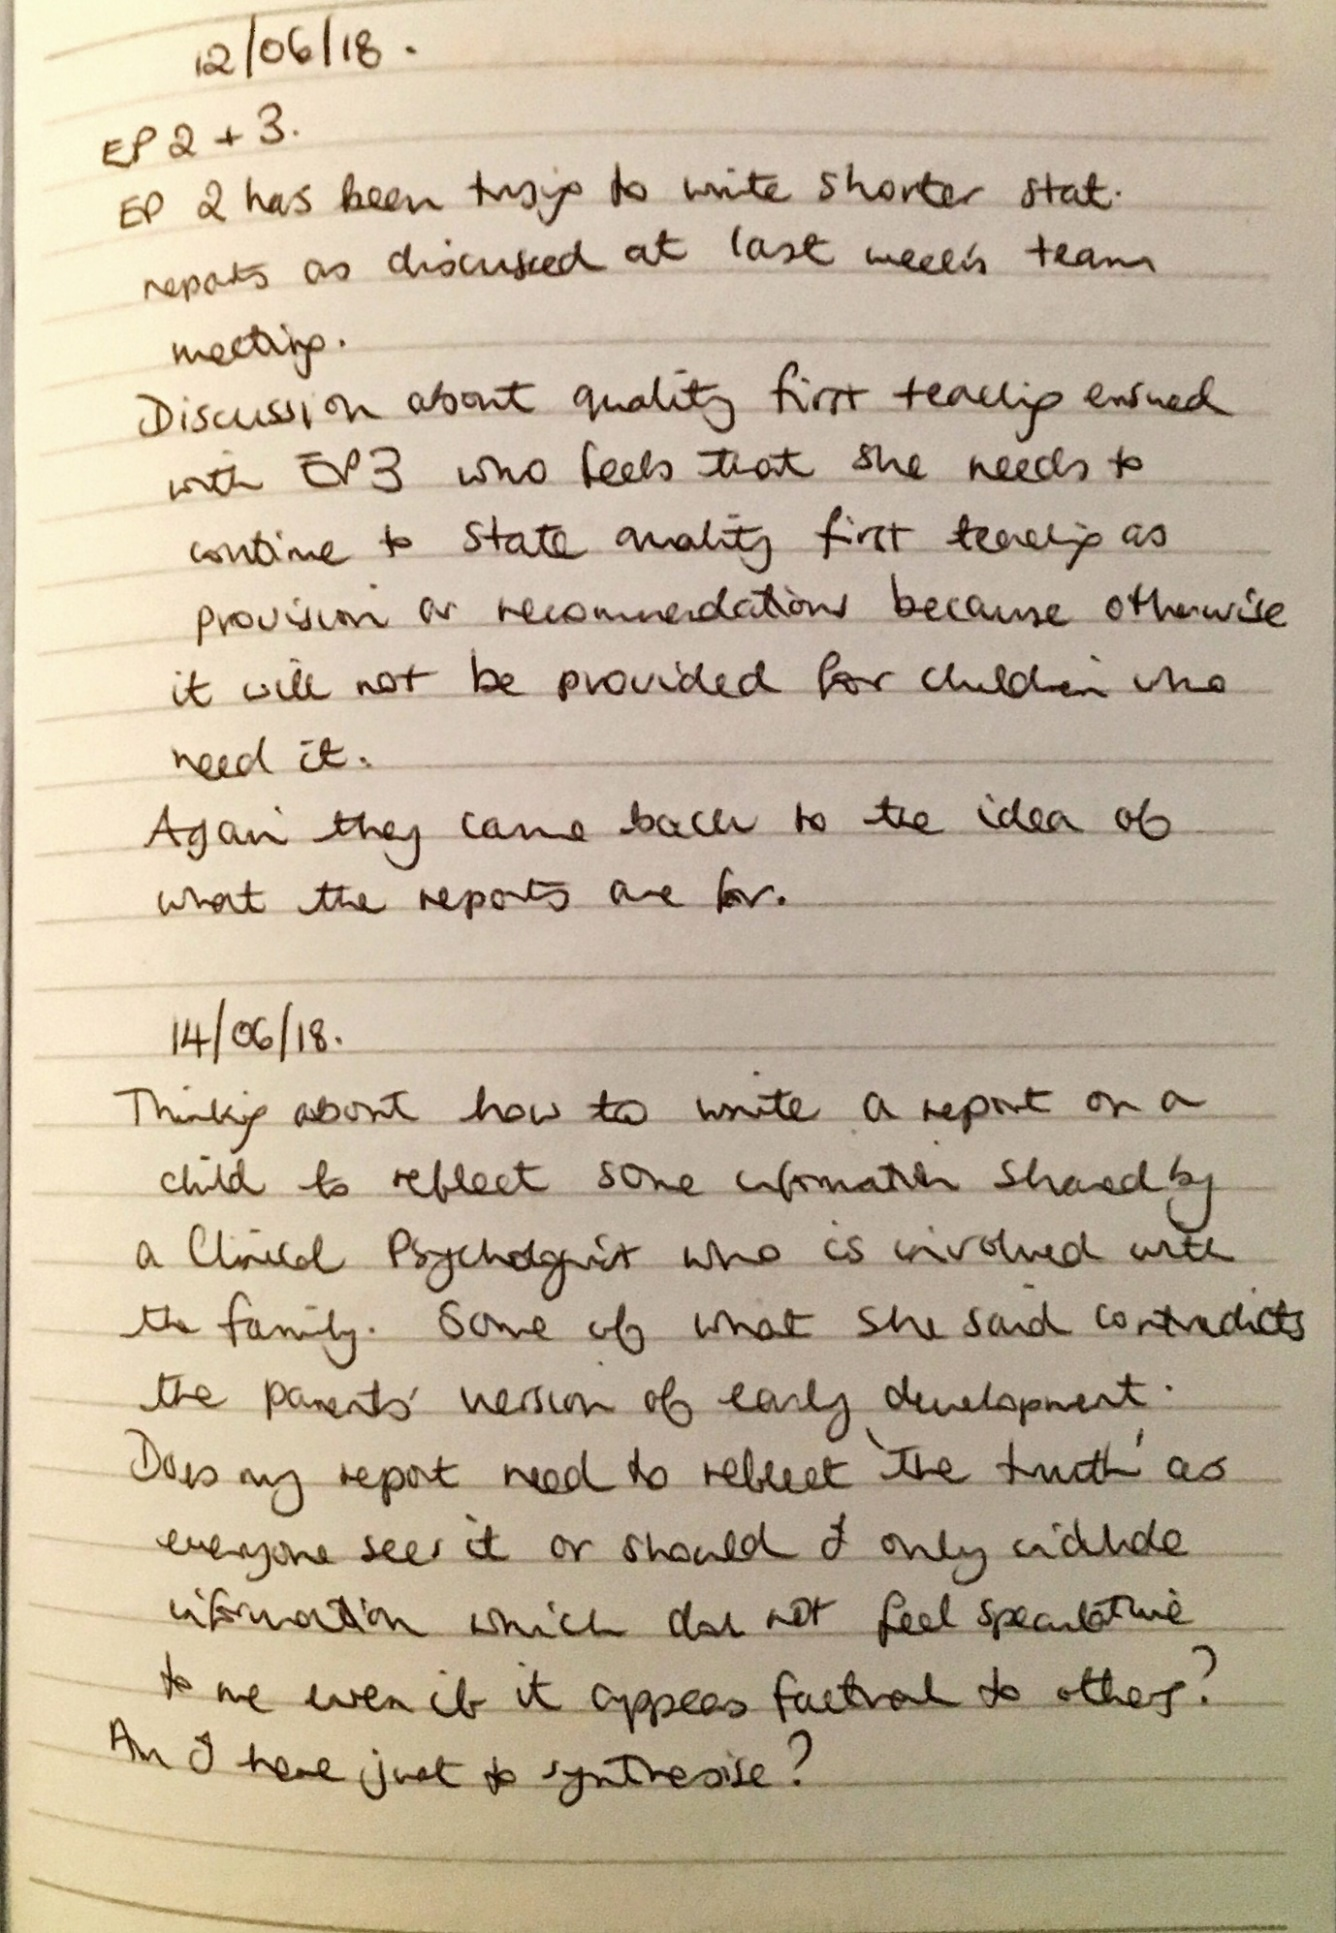 12/06/18.
EP 2 + 3.
EP 2 has been trying to write shorter stat.
reports as discussed at last week's team
meeting.
Discussion about quality first teaching ensued
with EP3 who feels that she needs to
continue to state quality first teaching as
provision or recommendations because otherwise
it will not be provided for children who
need it.
Again they came back to the idea of
what the reports are for.
14/06/18.
Thinking about how to write a report on a
child to reflect some information shared by
a Clinical Psychologist who is involved with
the family. Some of what she said contradicts
the parents' version of early development.
Does my report need to reflect 'the truth' as
everyone sees it or should I only include
information which does not feel speculative
to me even if it appears factual to others?
Am I here just to synthesise?